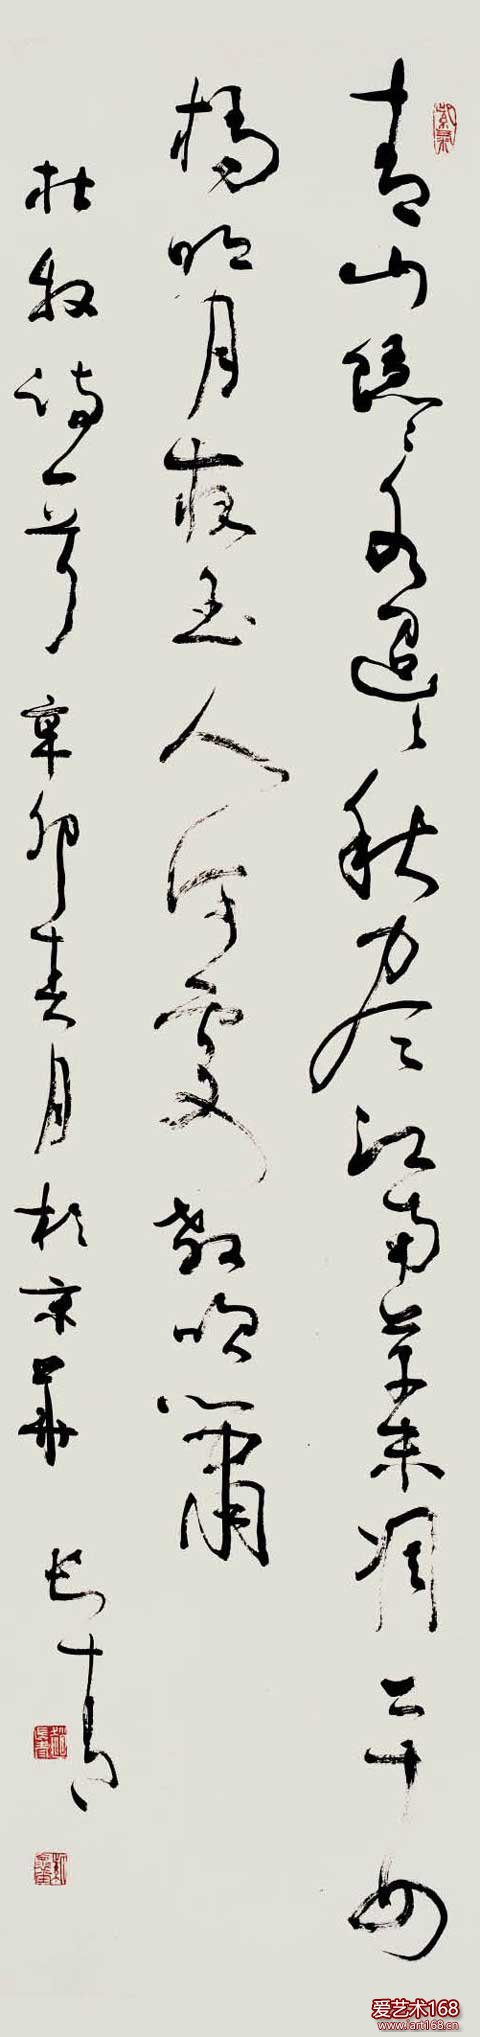 青山隱々水迢々秋尽江南草未凋二十四
橋明月夜玉人何處教吹簫
杜牧詩一首 辛卯春月於京華 長青
爱艺术168
www.iart168.cn